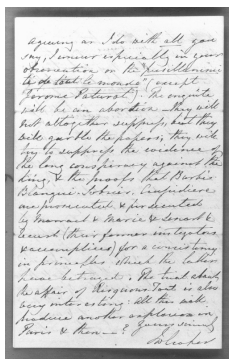 agreeing as I do with all you
say, I concur especially in your
observation on the pusillanimité
de tout le monde" (except
Jerome Paturot). The enquête
will be an abortion. They will
not altogether suppress, but they
will garble the papers; they will
try to suppress the evidence of
the long conspiracy against the
& the proofs that Barbès
Blanqui Sobrier
are prosecuted & persecuted
by Marrast & Marie & Senard &
Recurt (their former instigators
& accomplices) for a consistency
in principles which the latter
have betrayed. The trial about
the affair of Risquons Tout is also
very interesting: all this will
produce another explosion in
Paris & then—?